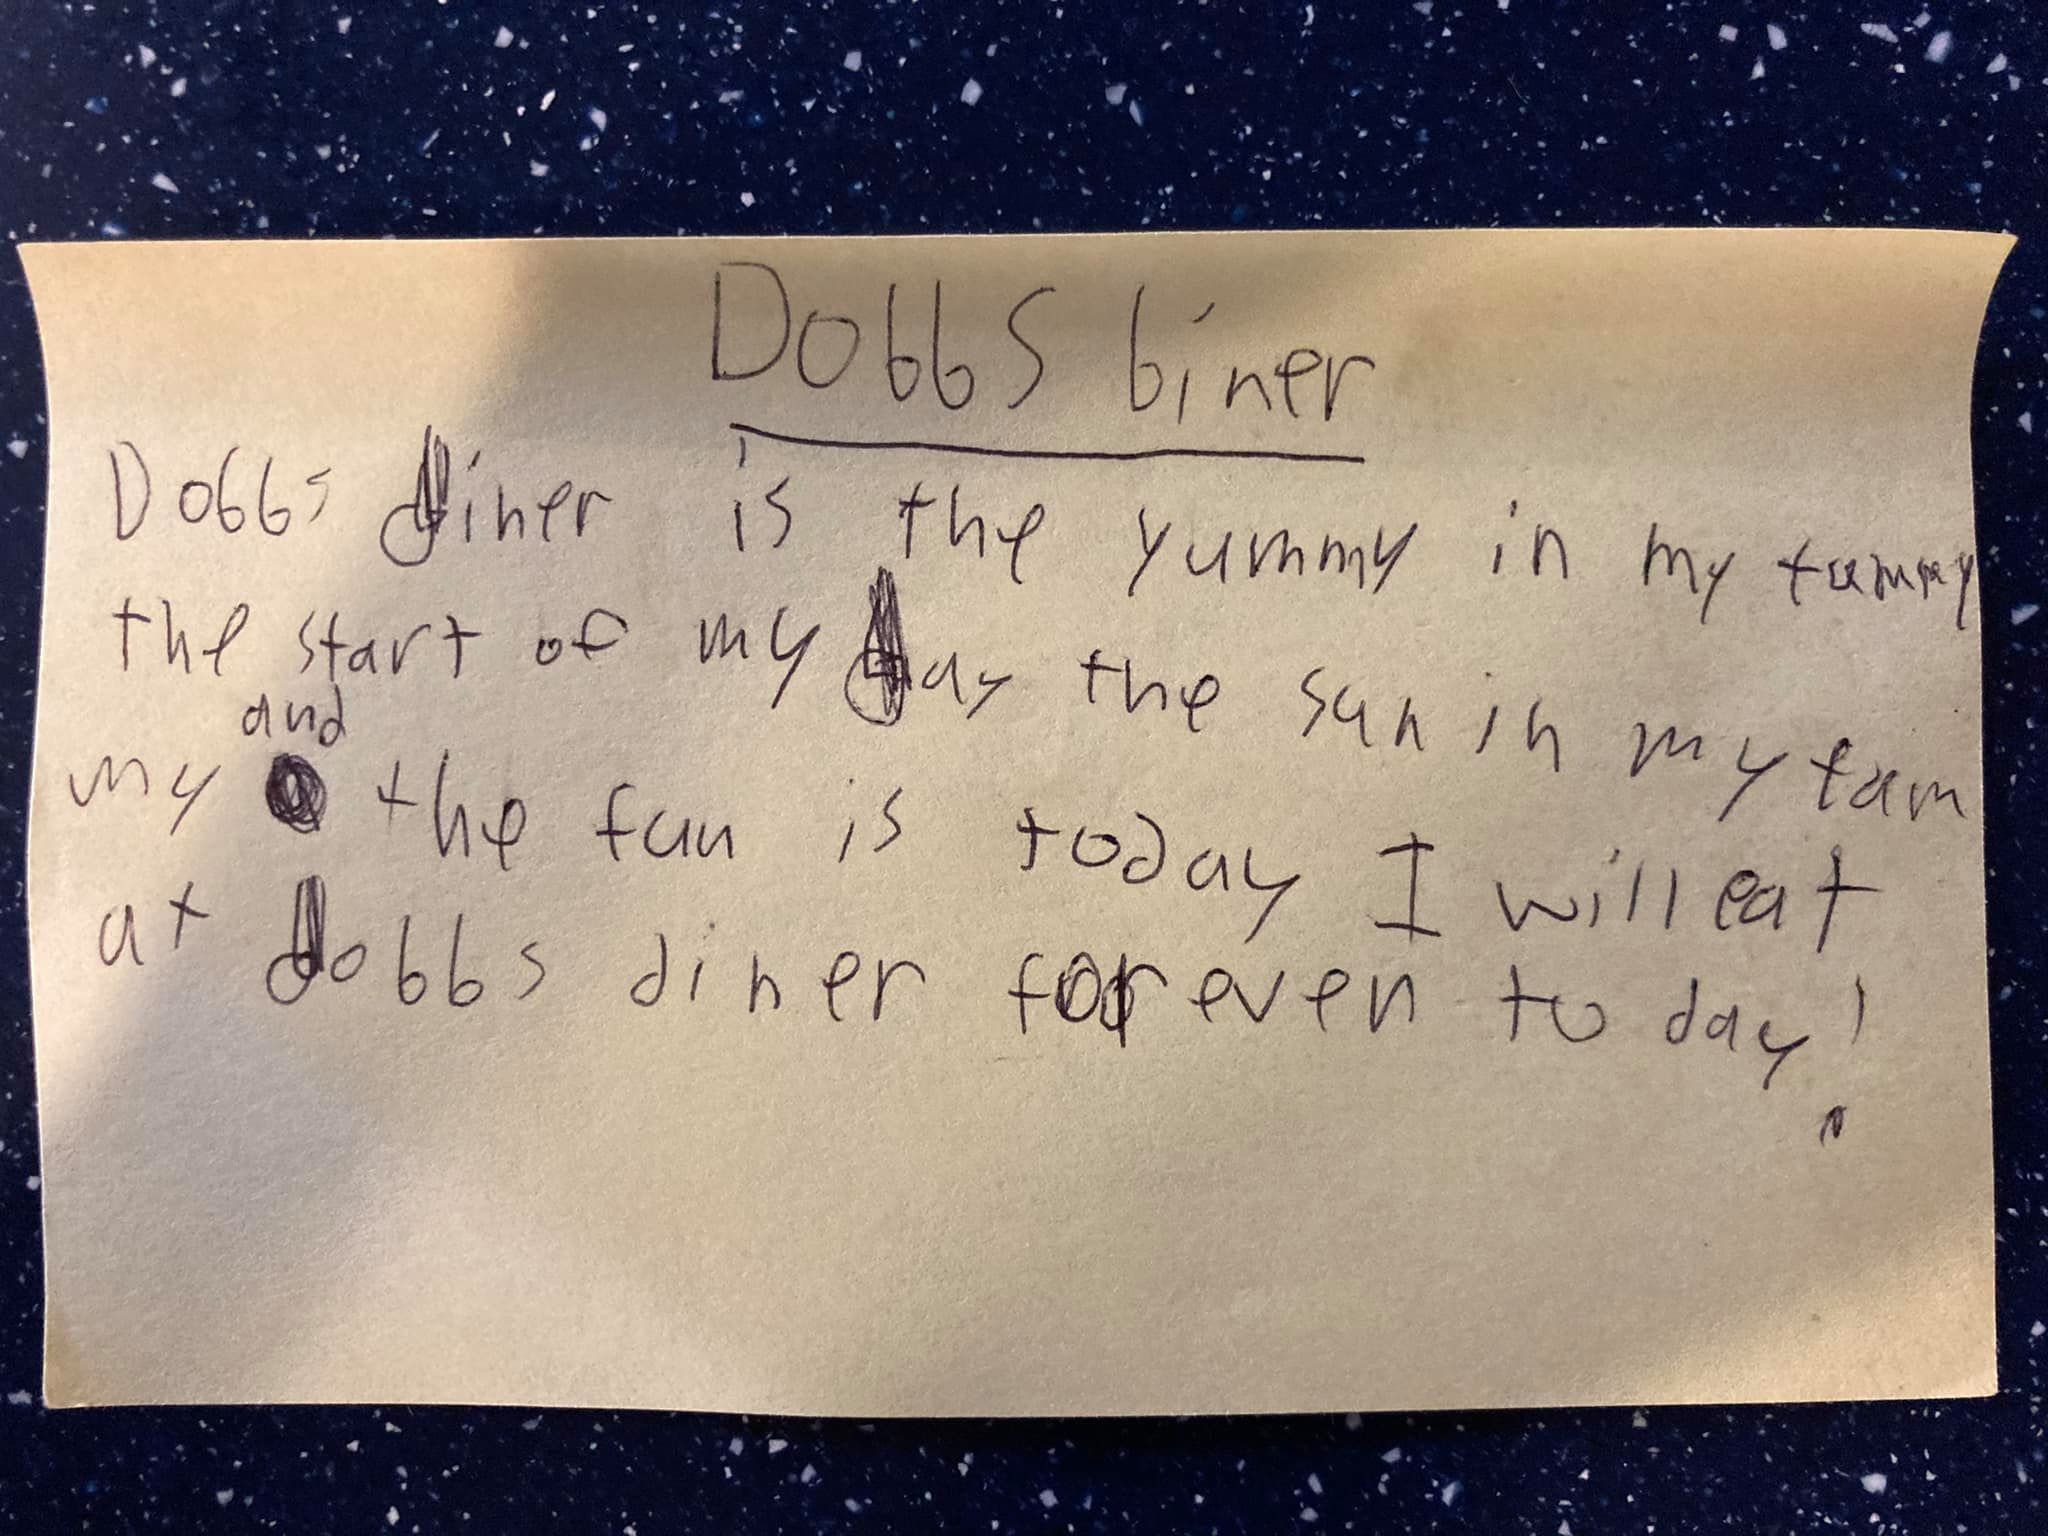 Dobbs biner
Dobbs diner is the yummy in my tummy
the start of my day the sun in my tum
my and the fun is today I will eat
at dobbs diner for even to day!